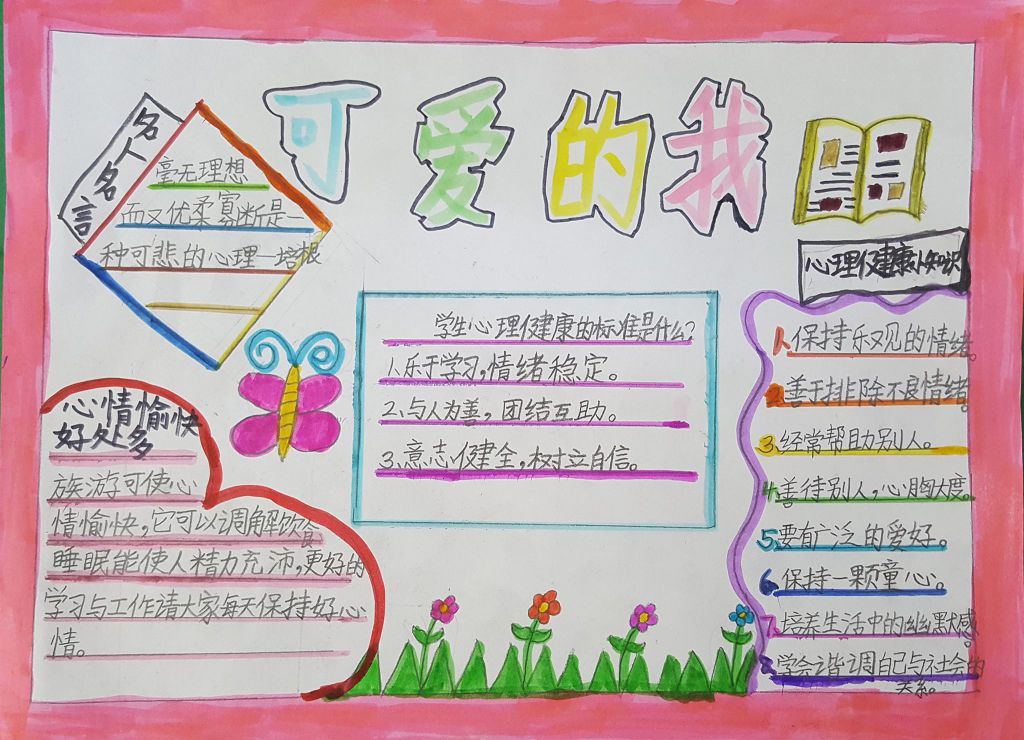 可爱的我
名人名言
毫无理想
而又优柔寡断是一
种可悲的心理—培根
心情愉快
好处多
旅游可使心
情愉快，它可以调解饮食
睡眠能使人精力充沛，更好的
学习与工作请大家每天保持好心
情。
学生心理健康的标准是什么？
1、乐于学习，情绪稳定。
2、与人为善，团结互助。
3、意志健全，树立自信。
心理健康小知识
1、保持乐观的情绪。
2、善于排除不良情绪。
3、经常帮助别人。
4、善待别人，心胸大度。
5、要有广泛的爱好。
6、保持一颗童心。
7、培养生活中的幽默感。
8、学会谐调自己与社会的
关系。